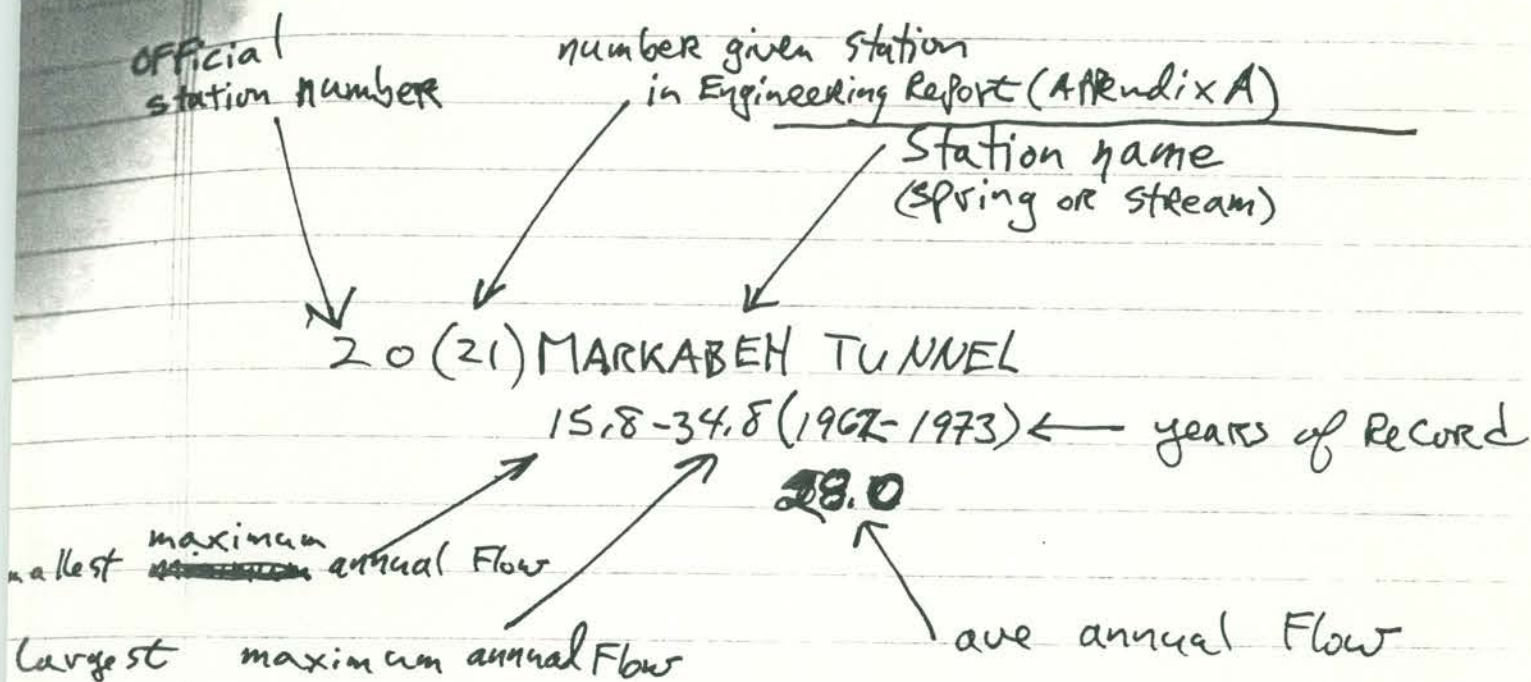 official
station number
number given station
in Engineering Report (Appendix A)
Station name
(spring or stream)
20 (21) MARKABEH TUNNEL
15.8-34.8 (1967-1973) ← years of Record
28.0
mallest maximum annual Flow
largest maximum annual Flow
ave annual Flow